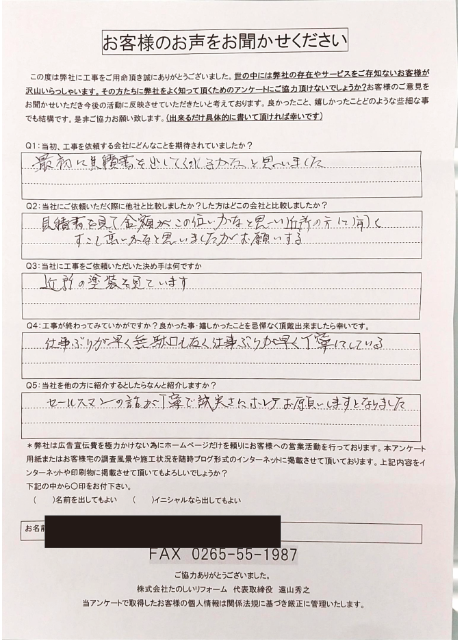 お客様のお声をお聞かせください
この度は弊社に工事をご用命頂き誠にありがとうございました。世の中には弊社の存在やサービスをご存知ないお客様が
沢山いらっしゃいます。その方たちに弊社をよく知って頂くためのアンケートにご協力頂けないでしょうか?お客様のご意見を
お聞かせいただき今後の活動に反映させていただきたいと考えております。良かったこと、嬉しかったことどのような些細な事
でも結構です。是非ご協力お願い致します。(出来るだけ具体的に書いて頂ければ幸いです)
Q1:当初、工事を依頼する会社にどんなことを期待されていましたか?
最初に見積書を出してくれるかなと思いました
Q2:当社にご依頼いただく際に他社と比較しましたか?した方はどこの会社と比較しましたか?
見積書を見て金額がこの位いかなと思い近所の方に聞く
すこし高いかなと思いましたがお願いする
Q3:当社に工事をご依頼いただいた決め手は何ですか
近所の塗装を見ています
Q4:工事が終わってみていかがですか?良かった事・嬉しかったことを忌憚なく頂戴出来ましたら幸いです。
仕事ぶりが早く無駄口もなく仕事ぶりが早く丁寧にしている
Q5:当社を他の方に紹介するとしたらなんと紹介しますか?
セールスマンの話が丁寧で誠実さに お願いしますとなりました
*弊社は広告宣伝費を極力かけない為にホームページだけを頼りにお客様への営業活動を行っております。本アンケート
用紙またはお客様宅の調査風景や施工状況を随時ブログ形式のインターネットに掲載させて頂いております。上記内容をイ
ンターネットや印刷物に掲載させて頂いてもよろしいでしょうか?
下記の中から〇印をお付下さい。
( )名前を出してもよい ( )イニシャルなら出してもよい
お名前
FAX 0265-55-1987
ご協力ありがとうございました。
株式会社たのしいリフォーム 代表取締役 遠山秀之
当アンケートで取得したお客様の個人情報は関係法規に基づき厳正に管理いたします。